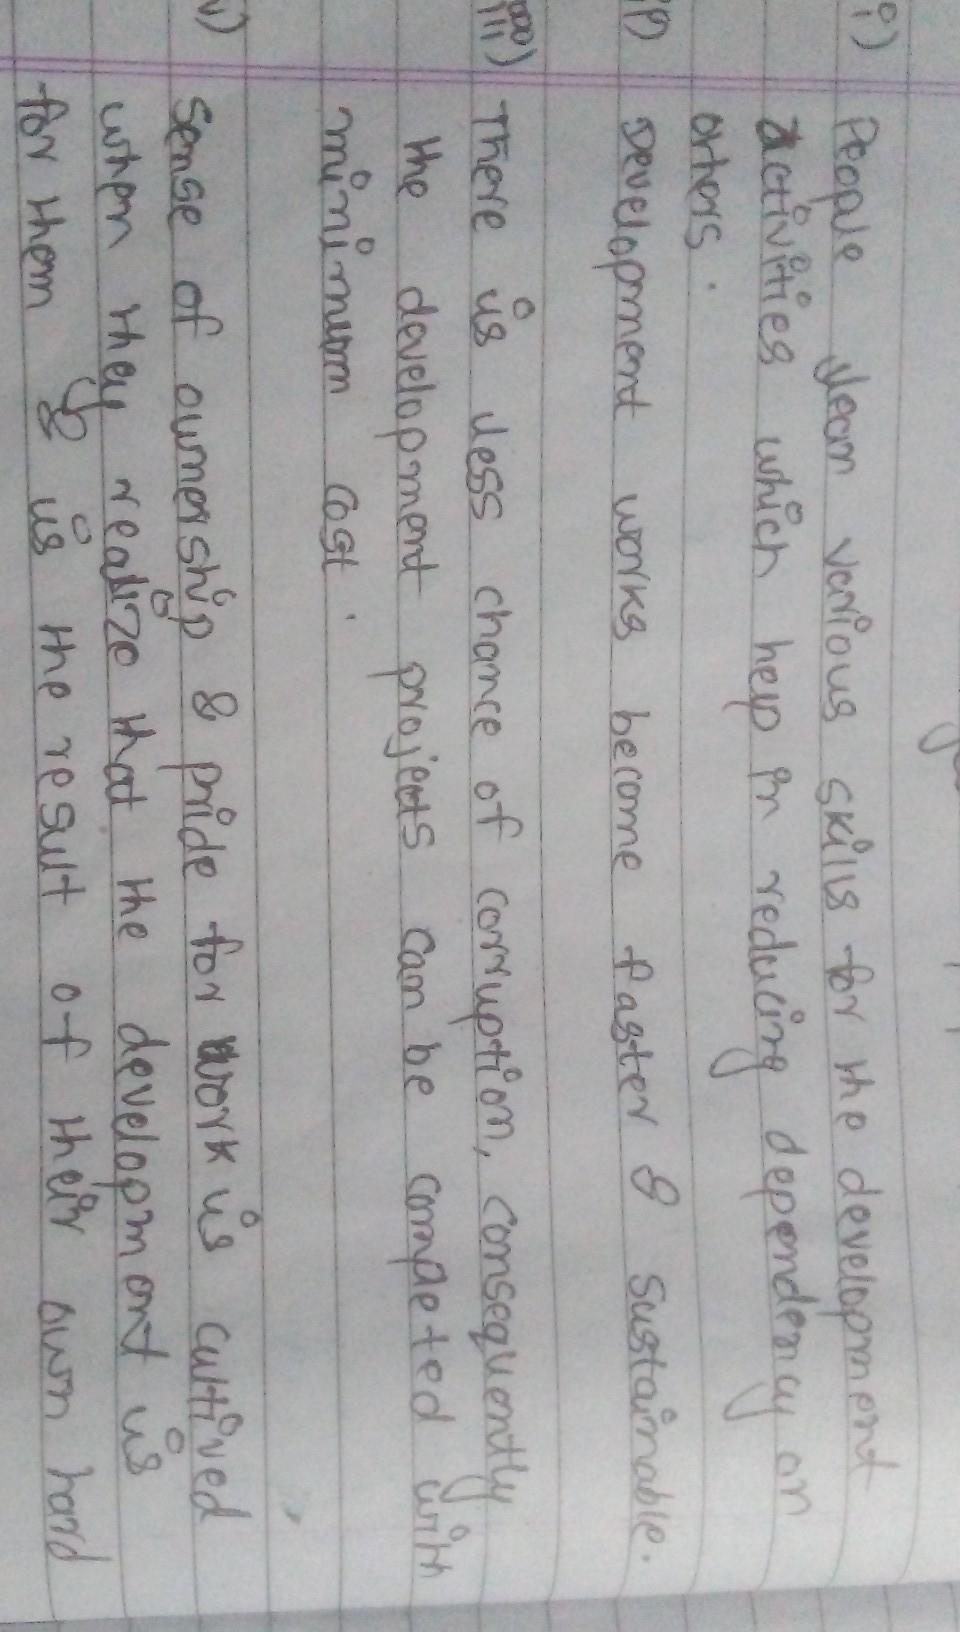 i) People learn various skills for the development
activities which help in reducing dependency on
others.
ii) Development works become faster & sustainable.
iii) There is less chance of corruption, consequently
the development projects can be completed with
minimum cost.
v) Sense of ownership & pride for work is cultived
when they realize that the development is
for them & is the result of their own hard